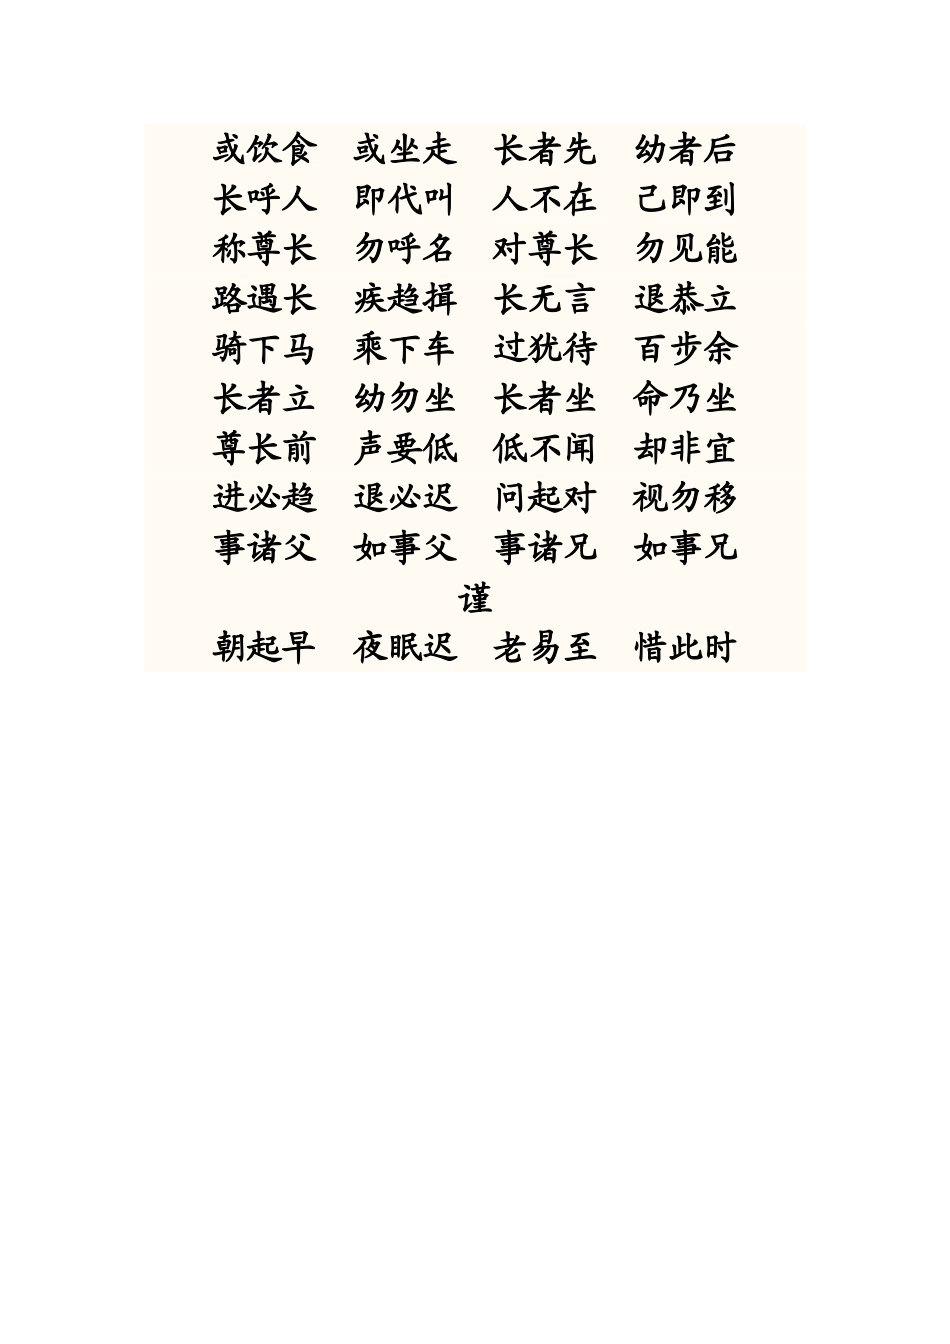 或饮食 或坐走 长者先 幼者后
长呼人 即代叫 人不在 己即到
称尊长 勿呼名 对尊长 勿见能
路遇长 疾趋揖 长无言 退恭立
骑下马 乘下车 过犹待 百步余
长者立 幼勿坐 长者坐 命乃坐
尊长前 声要低 低不闻 却非宜
进必趋 退必迟 问起对 视勿移
事诸父 如事父 事诸兄 如事兄
谨
朝起早 夜眠迟 老易至 惜此时